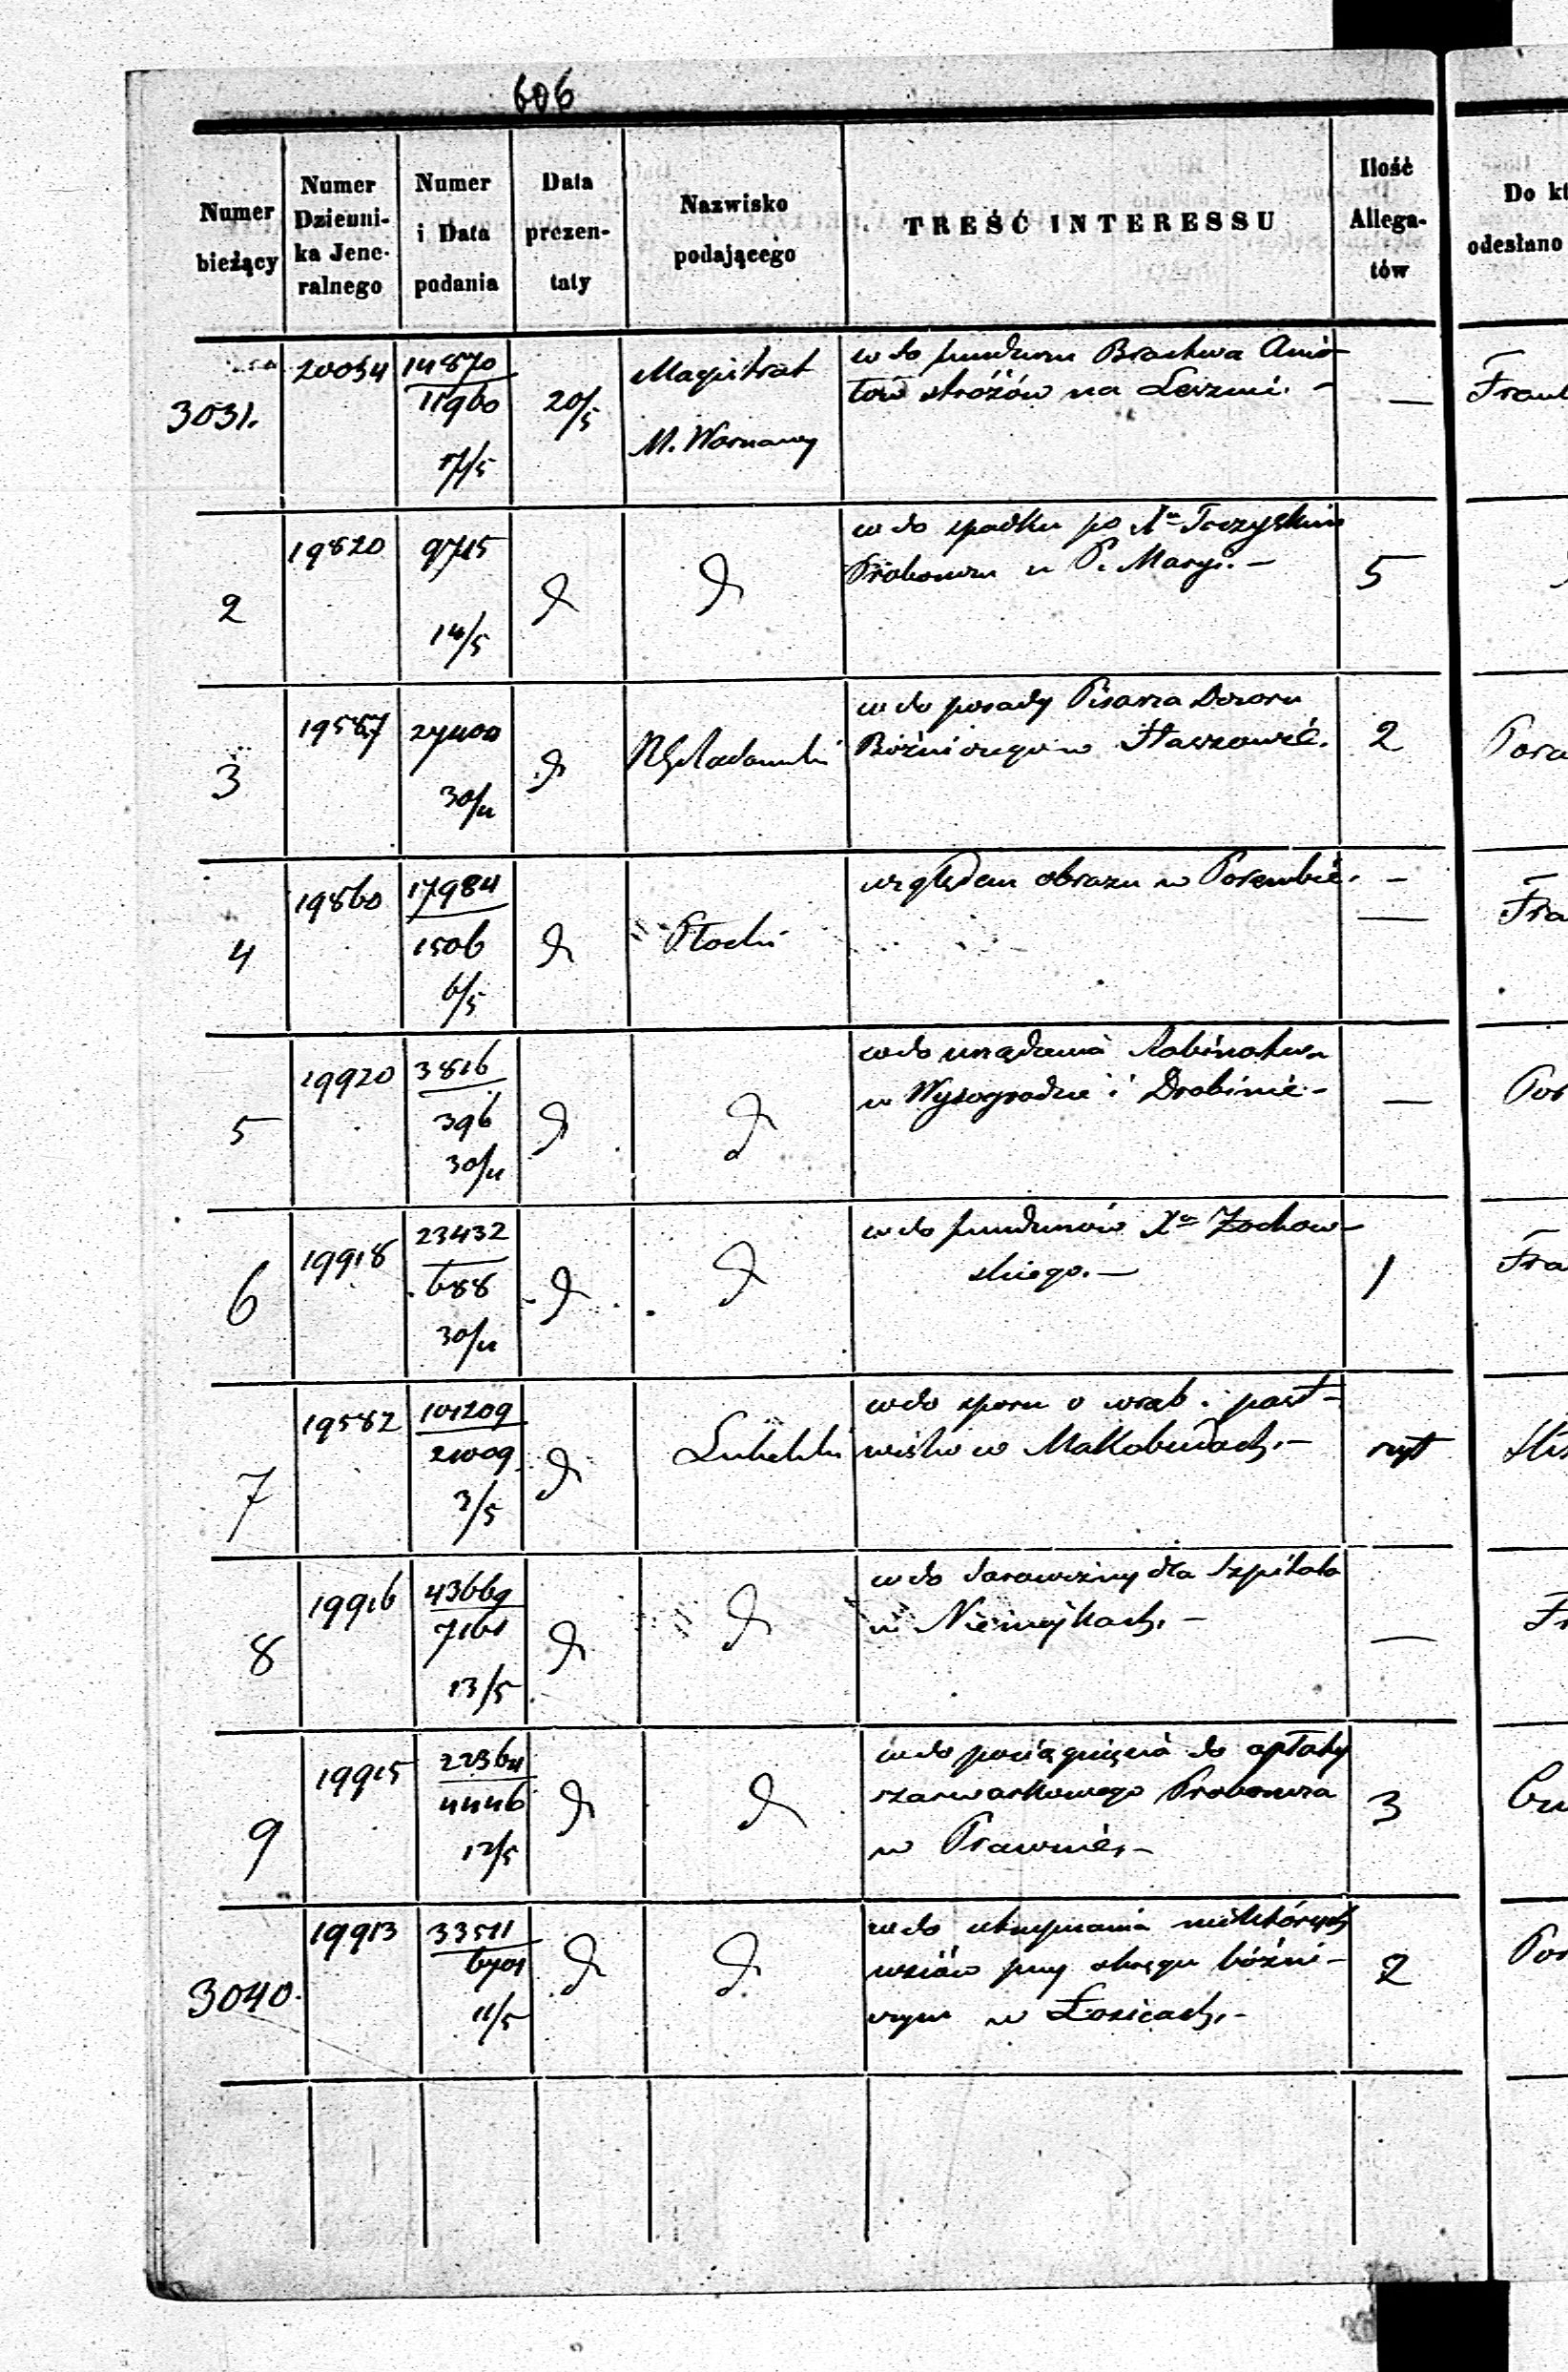 606
Numer bieżący
Numer Dzienni-ka Jene-ralnego
Numer i Data podania
Data prezen-taty
Nazwisko podającego
TREŚĆ INTERESSU
Ilość Allega-tów
Do kt
odesłano
3031.
20054
14870
11960
17/5
20/5
Magistrat
M. Warszawy
w do funduszu Bractwa Anio-
łów stróżów na Lesznie. -
—
2
19820
9715
14/5
w do spadku po Xu Toczyskim
Proboszczu u P. Maryi. -
5
3
19587
27400
30/4
w do posady Pisarza Dozoru
Bóżniczego w Staszowie.
2
4
19860
17984
1506
6/5
Płocki
względem obrazu w Porembie. -
—
5
19920
3816
396
30/4
w do urządzenia Rabinatu
w Wyszogrodzie i Drobinie -
—
6
19918
23432
688
30/4
w do funduszów Xa Żochow-
skiego. -
1
7
19582
101209
21009
3/5
Lubelski
w do sporu o wrąb i past-
wisko w Makobudach. -
8
19916
43669
7161
13/5
w do darowizny dla Szpitala
w Niemojkach. -
—
9
19915
22364
4446
12/5
w do pociągnięcia do opłaty
szarwarkowego Proboszcza
w Prawnie. -
3
3040.
19913
33511
6701
11/5
w do utrzymania niektórych
wsiów przy okręgu bóżni-
czym w Łosicach. -
2